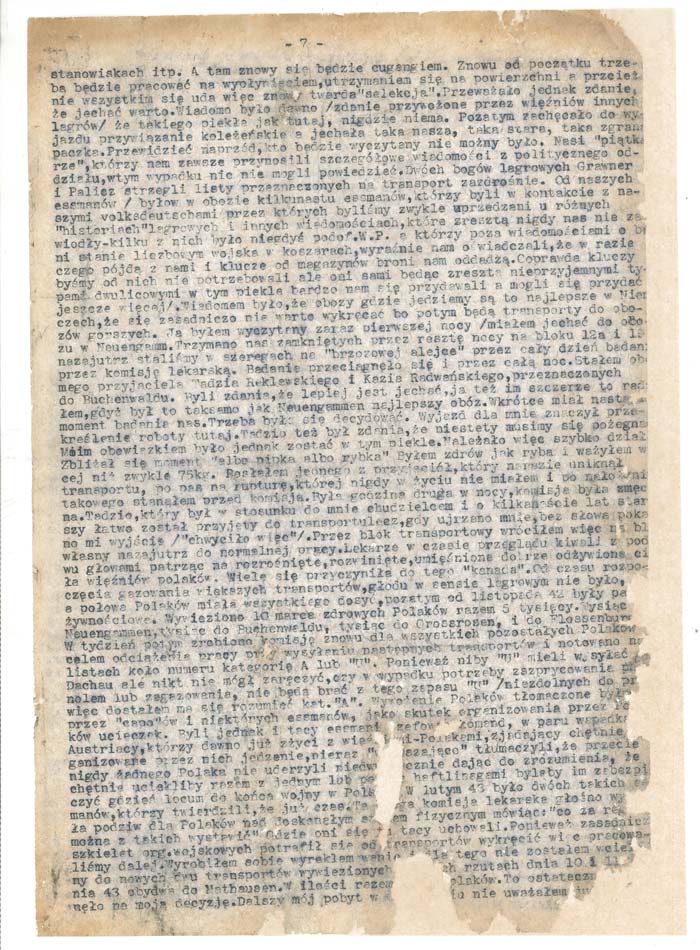 - 7 -
stanowiskach itp. A tam znowy się będzie cugangiem. Znowu od początku trze-
ba będzie pracować na wypłynięciem,utrzymaniem się na powierzchni a przecież
nie wszystkim się uda więc znowu twarda"selekcja".Przeważało jednak zdanie,
że jechać warto.Wiadomo było dawno /zdanie przywożone przez więźniów innych
lagrów/ że takiego piekła jak tutaj, nigdzie niema. Pozatym zachęcało do wy-
jazdu przywiązanie koleżeńskie a jechała taka nasza, taka stara, taka zgrana
paczka.Przewidzieć naprzód,kto będzie wyczytany nie możny było. Nasi "piątka
rze",którzy nam zawsze przynosili szczegółowe wiadomości z politycznego od-
działu,wtym wypadku nic nie mogli powiedzieć.Dwóch bogów lagrowych Grawner
i Palicz strzegli listy przeznaczonych na transport zazdrośnie. Od naszych
esmanów / byłow w obozie kilkunastu esmanów,którzy byli w kontakcie z na-
szymi volksdeutschami przez których byliśmy zwykle uprzedzani u różnych
"historiach"lagrowych i innych wiadomościach,które zresztą nigdy nas nie za
wiodły-kilku z nich było niegdyś podof.W.P. a którzy poza wiadomościami o
ni stanie liczbowym wojska w koszarach,wyraźnie nam oświadczali,że w razie
czego pójdą z nami i klucze od magazynów broni nam oddadzą.Coprawda kluczy
byśmy od nich nie potrzebowali ale oni sami bedąc zreszta nieprzyjemnymi ty-
pami dwulicowymi w tym piekle bardzo nam się przydawali a mogli się przydać
jeszcze więcej/.Wiadomem było,że obozy gdzie jedziemy są to najlepsze w Niem
czech,że się zasadniczo nie warto wykręcać bo potym będą transporty do obo-
zów gorszych. Ja byłem wyczytany zaraz pierwszej nocy /miałem jechać do obo
zu w Neuengamm.Trzymano nas zamkniętych przez resztę nocy na bloku 12a i
nazajutrz staliśmy w szeregach na "brzozowej alejce" przez cały dzień badani
przez komisję lekarską. Badanie przeciągnęło się i przez całą noc.Stałem obo
mego przyjaciela Tadzia Reklewskiego i Kazia Radwańskiego,przeznaczonych
do Buchenwaldu. Byli zdania,że lepiej jest jechać,ja też im szczerze to radz
łem,gdyż był to taksamo jak Neuengammen najlepszy obóz.Wkrótce miał nastą
moment badania nas.Trzeba było się decydować. Wyjazd dla mnie znaczył prze-
kreślenie roboty tutaj.Tadzio też był zdania,że niestety musimy się pożegnać
Moim obowiązkiem było jednak zostać w tym piekle.Należało więc szybko dział
Zbliżał się moment "albo pipka albo rybka" Byłem zdrów jak ryba i ważyłem w
cej niż zwykle 75kg. Posłałem jednego z przyjaciół,który narazie uniknął
transportu, po pas na rupturę,której nigdy w życiu nie miałem i po nałożeniu
takowego stanąłem przed komisja.Była godzina druga w nocy,komisja była zmęc
na.Tadzio,który był w stosunku do mnie chudzielcem i o kilkanaście lat star
szy łatwo został przyjęty do transportulecz,gdy ujrzano mnie,bez słowa poka
no mi wyjście /"chwyciło więc"/.Przez blok transportowy wróciłem więc na bl
własny nazajutrz do normalnej pracy.Lekarze w czasie przeglądu kiwali z pod
wu głowami patrząc na rozrośnięte,rozwinięte,umięśnione dobrze odżywione ci
ła więźniów polaków. Wiele się przyczyniła do tego "kanada".Od czasu rozpo-
częcia gazowania większych transportów,głodu w sensie lagrowym nie było,
a połowa Polaków miała wszystkiego dosyć,pozatym od listopada 42 były pa
żywnościowe. Wywieziono 10 marca zdrowych Polaków razem 5 tysięcy.Tysiąc
Neuengammen,tysiąc do Buchenwaldu, tysiąc do Grossrosen, i do Flossenburg
W tydzień potym zrobiono komisję znowu dla wszystkich pozostałych Polaków
celem odciążenia pracy przy wysyłaniu następnych transportów i notowano na
listach koło numeru kategorię A lub "U". Ponieważ niby "U" mieli wysyłać
Dachau ale nikt nie mógł zaręczyć,czy w wypadku potrzeby zaszprycowania
nolem lub zagazowania, nie będą brać z tego zapasu "U" /niezdolnych do pr
więc dostałem ma się rozumieć kat."A". Wywożenie Polaków tłomaczone było
przez "capo"ów i niektórych esmanów, jako skutek organizowania przez
ków ucieczek. Byli jednak i tacy esmani komand, w paru wypadka
Austriacy,którzy dawno już zżyci z Polakami,zjadający chętnie
ganizowane przez nich jedzenie,nieraz tłumaczyli,że przecie
nigdy żadnego Polaka nie uderzyli dając do zrozumienia, że
chętnie uciekliby razem z jednym lub haftlingami byleby im zabezpi
czyć gdzieś locum do końca wojny w W lutym 43 było dwóch takich
manów,którzy twierdzili,że już czas. komisja lekarska głośno wy
ła podziw dla Polaków nad doskonałym fizycznym mówiąc:"co za
można z takich wystawić" Gdzie oni się tacy uchowali.Ponieważ zasadnicz
szkielet org.wojskowych potrafił się od transportów wykręcić więc pracowa-
liśmy dalej.Wyrobiłem sobie tego nie zostałem wciel
ny do nowych dwu transportów wywiezionych rzutach dnia 10 i 11
nia 43 obydwa do Mathausen.W ilości razem polaków.To ostatecz
nęło na moją decyzję.Dalszy mój pobyt w nie uważałem